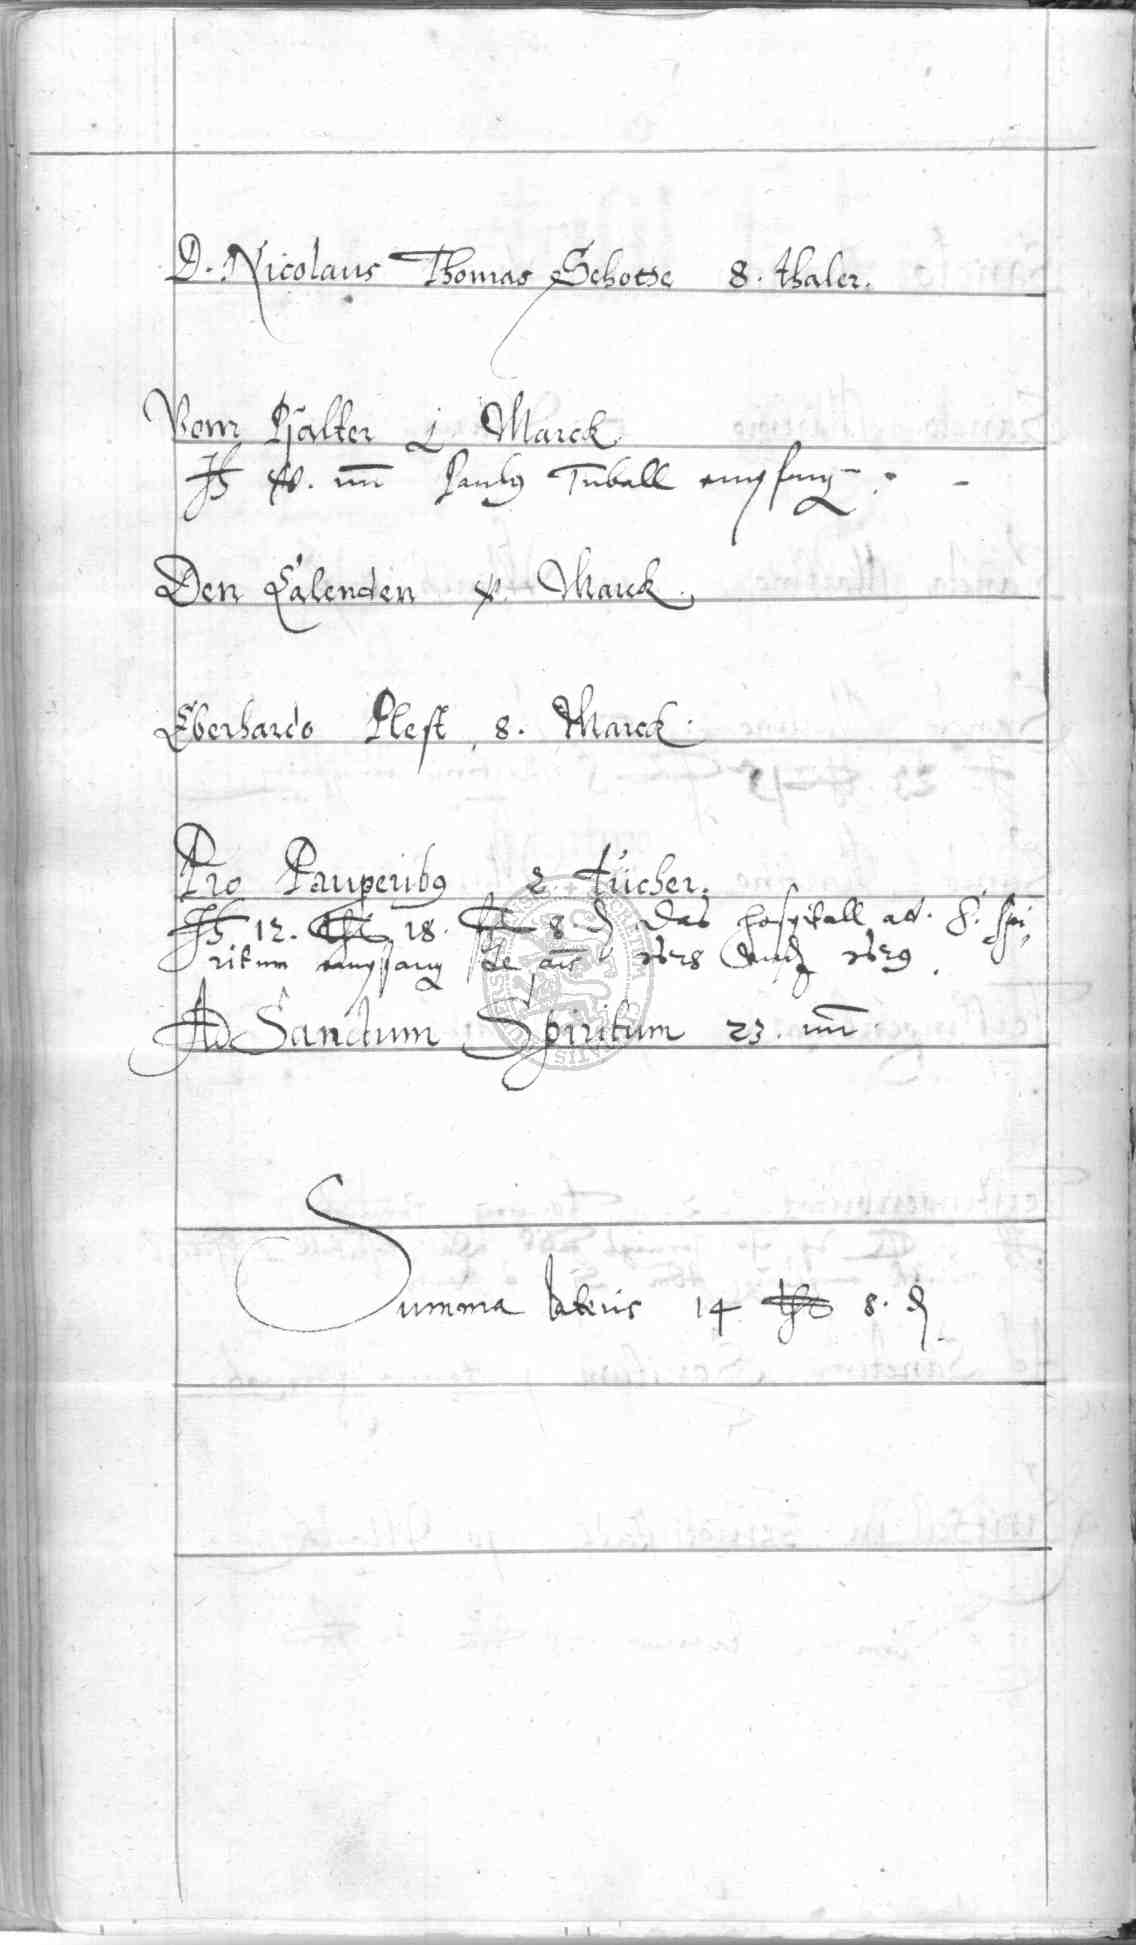 D. Nicolaus Thomas Schotse 8. thaler.
Vom Psalter j Marck
Paulus Tuball empfang
Den Calenden x. Marck.
Eberhardo Plest, 8. Marck.
Pro Pauperibus 2. Tücher.
12. 18. 8. Das hospitall ad. S. Spi-
ritum empfang de anno 1628 vnd 1629.
Ad Sanctum Spiritum 23.
Summa lateris 14 8.